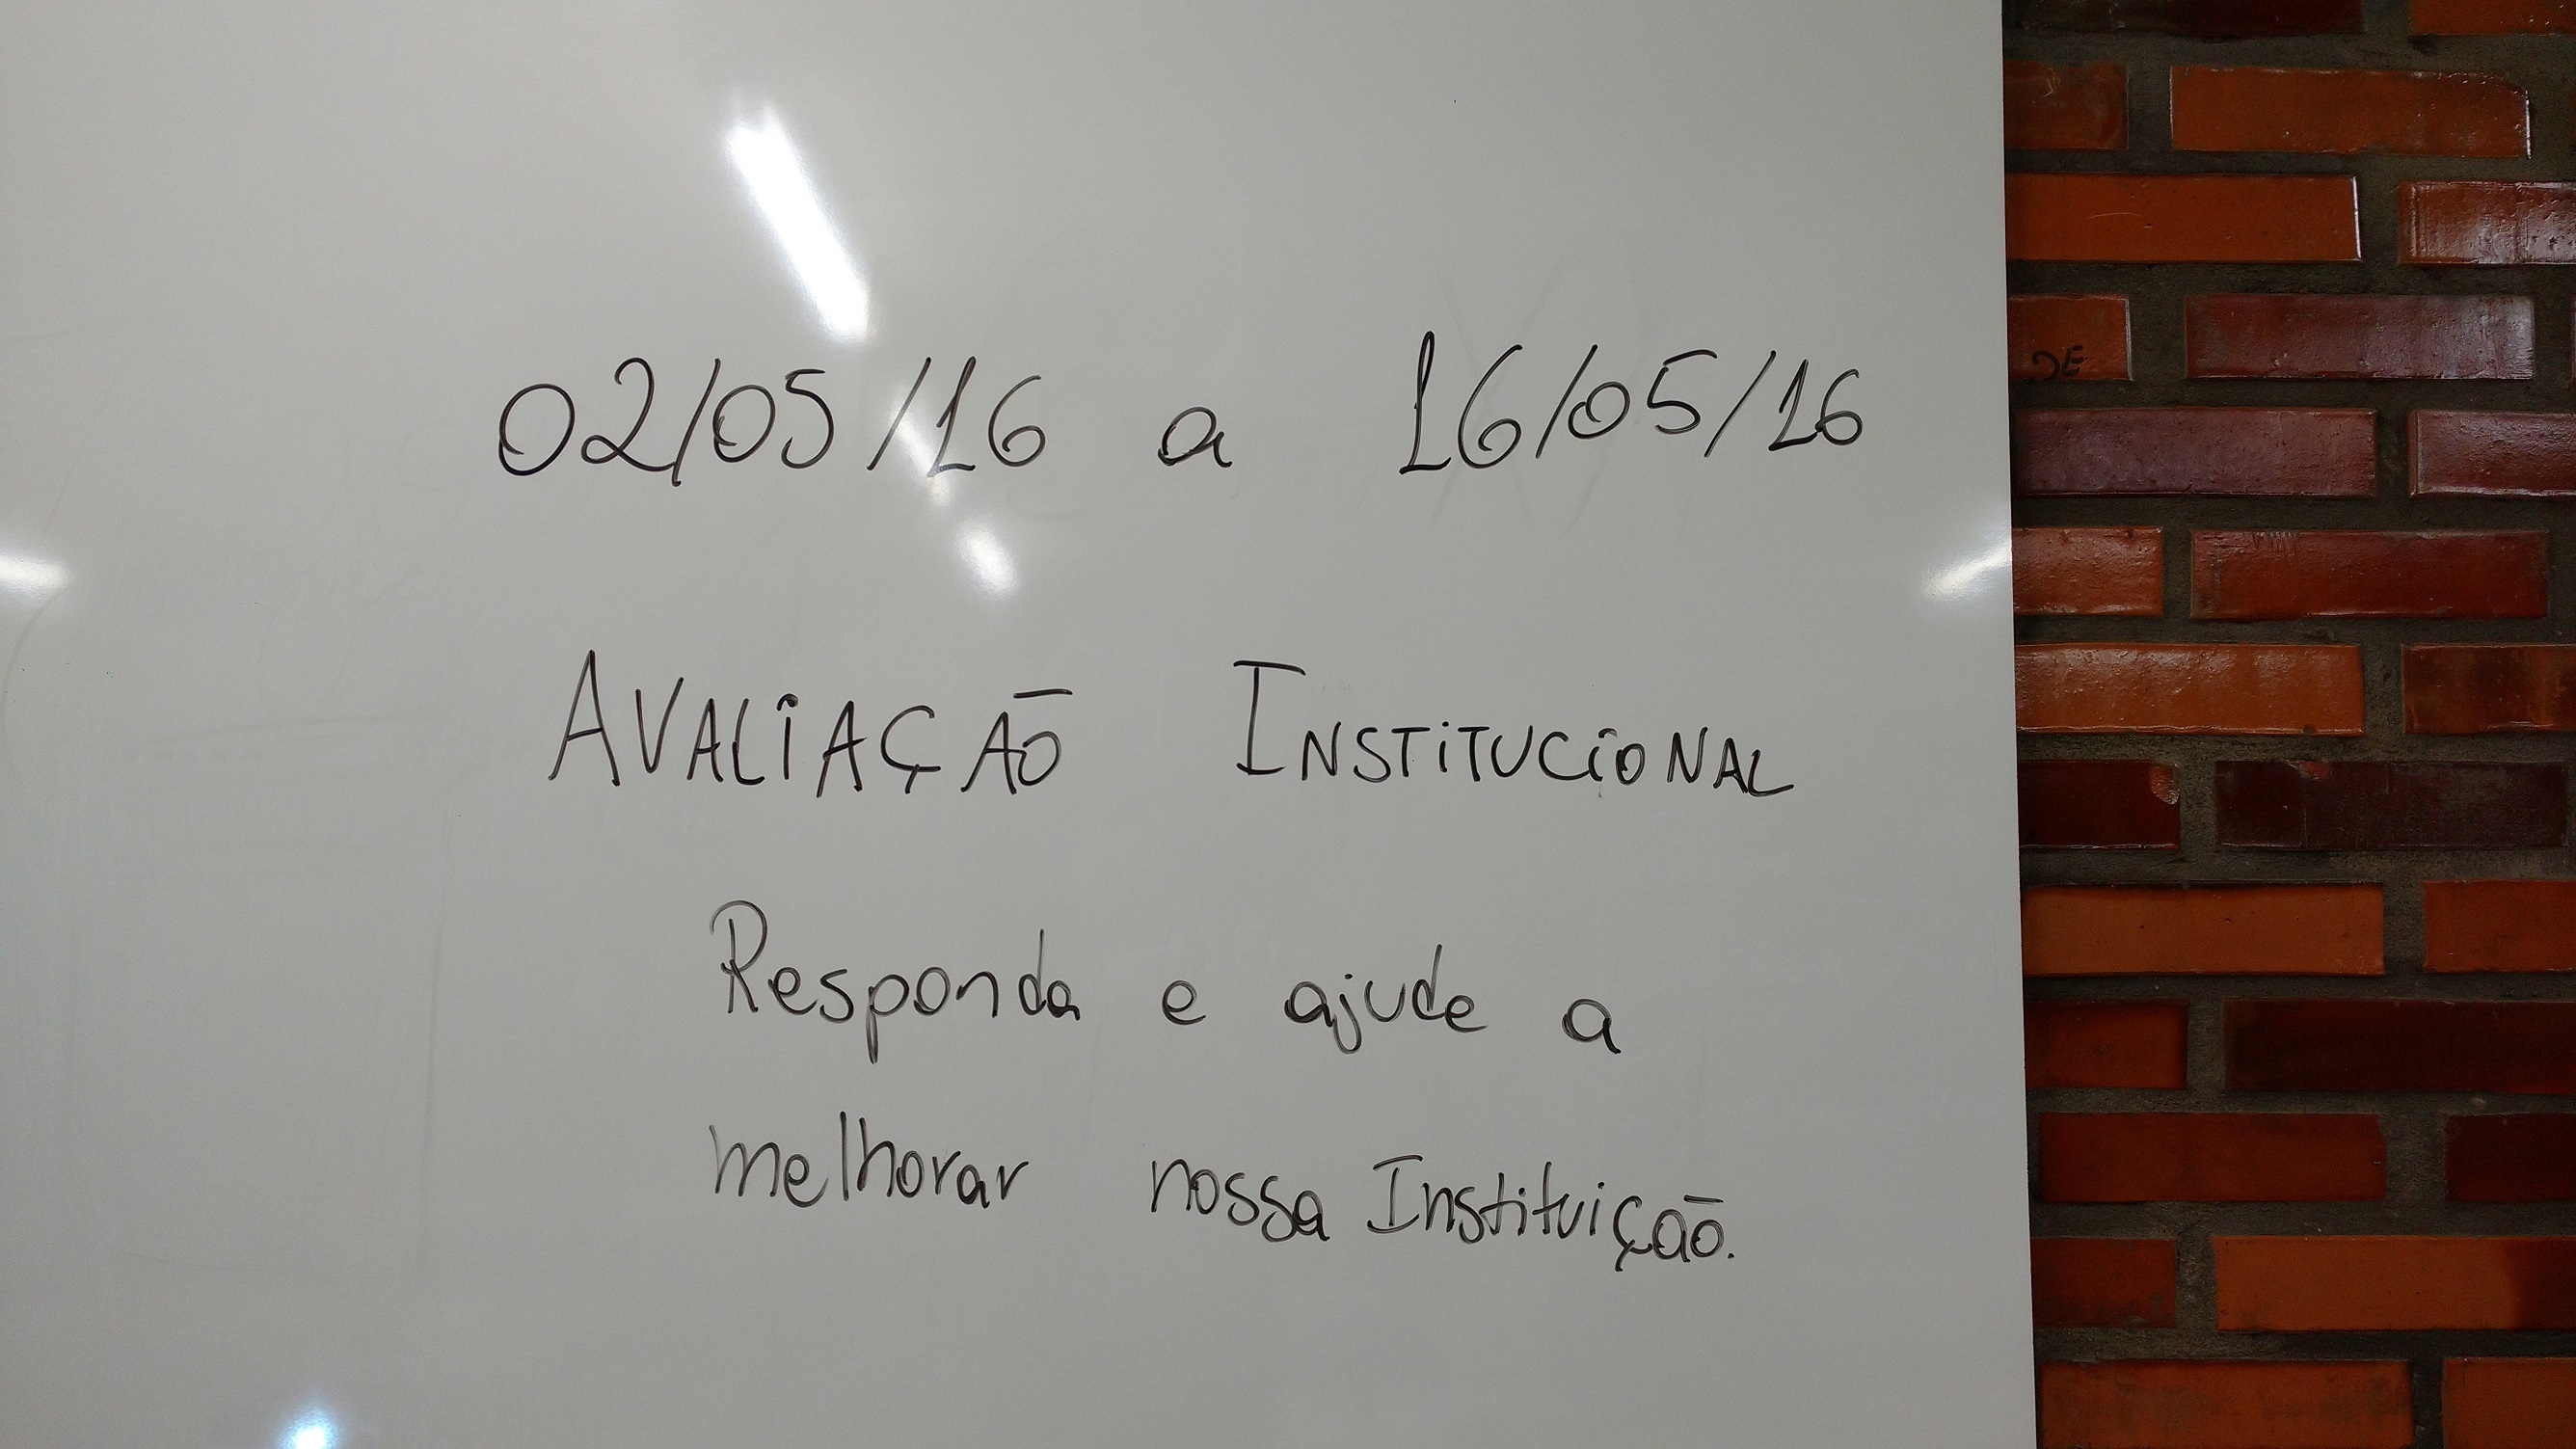 02/05/16 a 16/05/16
AVALIAÇÃO INSTITUCIONAL
Responda e ajude a
melhorar nossa Instituição.
DE